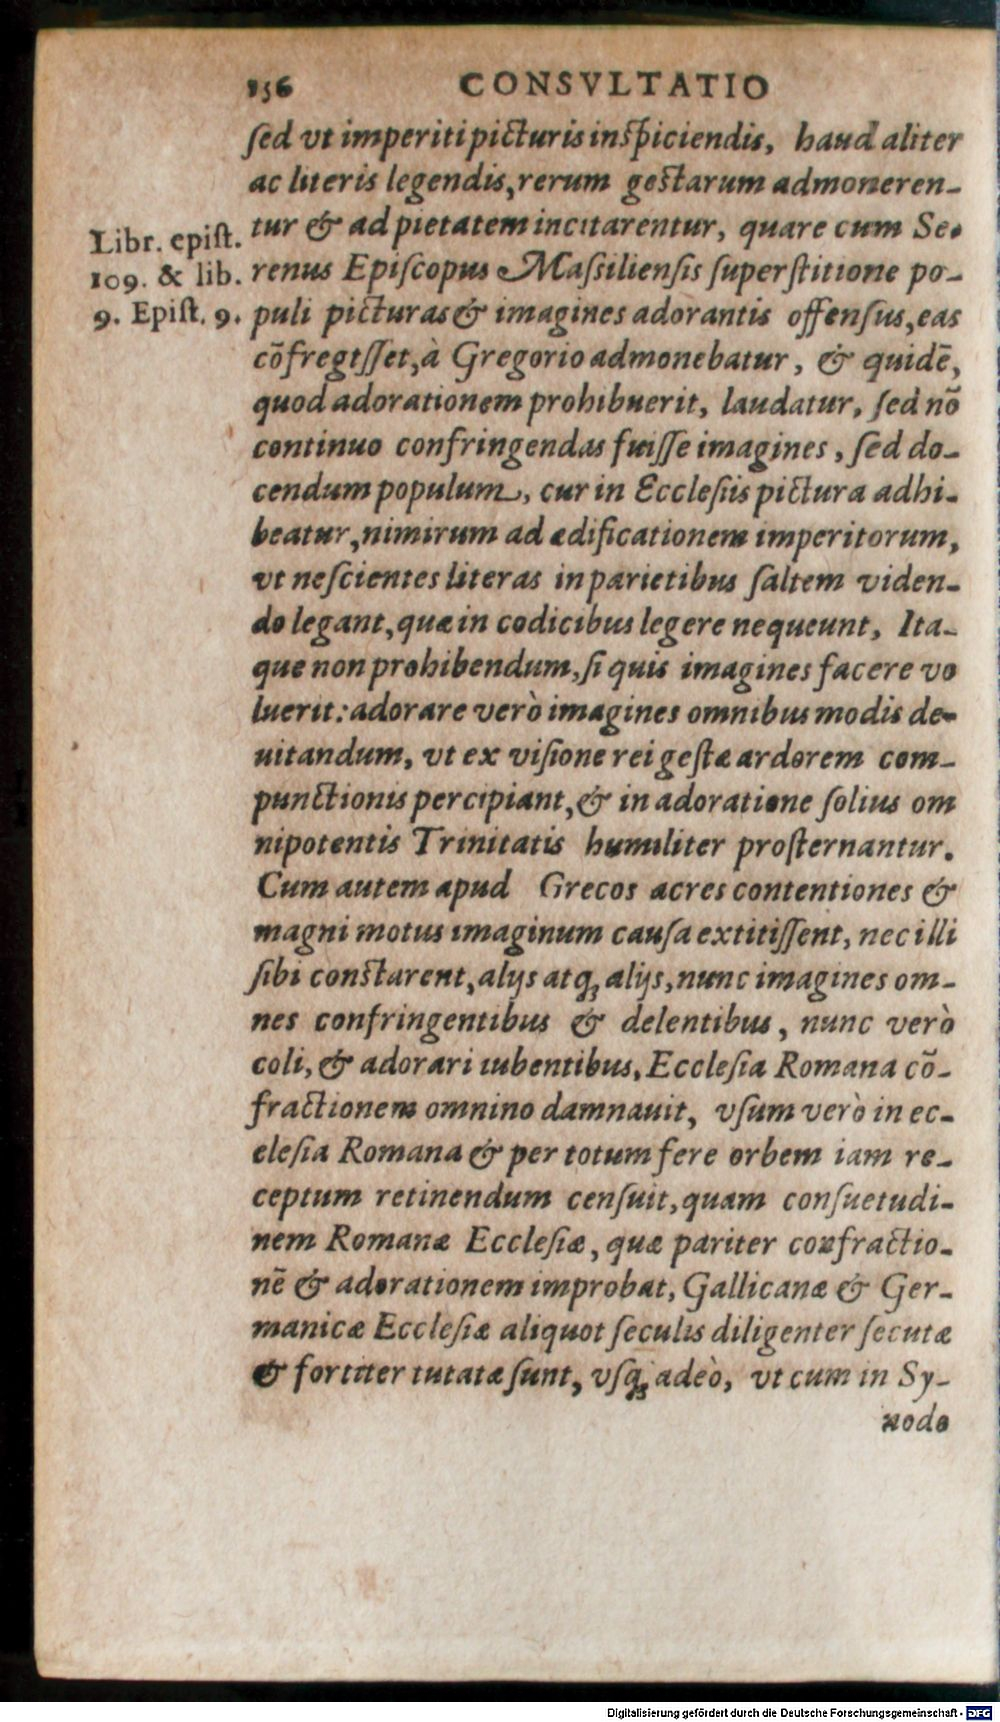 156 CONSVLTATIO
ſed vt imperiti picturis inſpiciendis, haud aliter
ac literis legendis, rerum geſtarum admoneren-
tur & ad pietatem incitarentur, quare cum Se-
Libr. epiſt.
109. & lib.
9. Epiſt. 9.
renus Epiſcopus Maſsilienſis ſuperſtitione po-
puli picturas & imagines adorantis offenſus, eas
cõfregiſſet, à Gregorio admonebatur, & quidẽ,
quod adorationem prohibuerit, laudatur, ſed nõ
continuo confringendas fuiſſe imagines, ſed do-
cendum populum, cur in Eccleſiis pictura adhi-
beatur, nimirum ad ædificationem imperitorum,
vt neſcientes literas in parietibus ſaltem viden-
do legant, quæ in codicibus legere nequeunt, Ita-
que non prohibendum, ſi quis imagines facere vo
luerit: adorare verò imagines omnibus modis de-
uitandum, vt ex viſione rei geſtæ ardorem com-
punctionis percipiant, & in adoratione ſolius om
nipotentis Trinitatis humiliter proſternantur.
Cum autem apud Grecos acres contentiones &
magni motus imaginum cauſa extitiſſent, nec illi
ſibi conſtarent, alijs atq; alijs, nunc imagines om-
nes confringentibus & delentibus, nunc verò
coli, & adorari iubentibus, Eccleſia Romana cõ-
fractionem omnino damnauit, vſum verò in ec-
cleſia Romana & per totum fere orbem iam re-
ceptum retinendum cenſuit, quam conſuetudi-
nem Romanæ Eccleſiæ, quæ pariter confractio-
nẽ & adorationem improbat, Gallicanæ & Ger-
manicæ Eccleſiæ aliquot ſeculis diligenter ſecutæ
& fortiter tutatæ ſunt, vſq; adeò, vt cum in Sy-
nodo
Digitalisierung gefördert durch die Deutsche Forschungsgemeinschaft - DFG